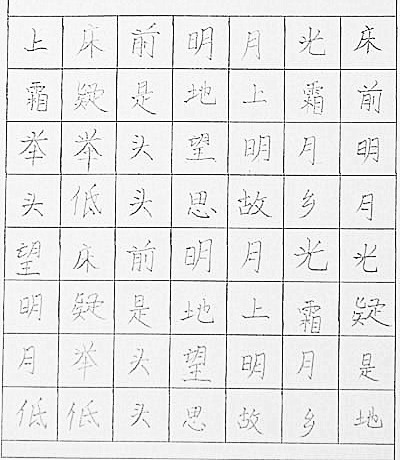 上床前明月光床
霜疑是地上霜前
举举头望明月明
头低头思故乡月
望床前明月光光
明疑是地上霜疑
月举头望明月是
低低头思故乡地